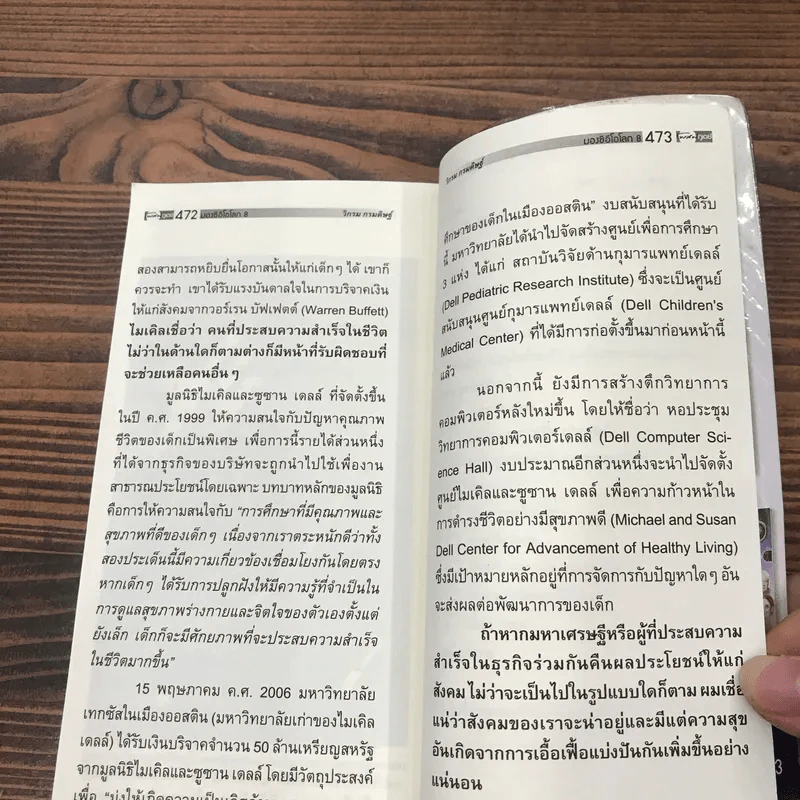 472 มองซีอีโอโลก 8 วิกรม กรมดิษฐ์
สองสามารถหยิบยื่นโอกาสนั้นให้แก่เด็กๆ ได้ เขาก็
ควรจะทำ เขาได้รับแรงบันดาลใจในการบริจาคเงิน
ให้แก่สังคมจากวอร์เรน บัฟเฟตต์ (Warren Buffett)
ไมเคิลเชื่อว่า คนที่ประสบความสำเร็จในชีวิต
ไม่ว่าในด้านใดก็ตามต่างก็มีหน้าที่รับผิดชอบที่
จะช่วยเหลือคนอื่นๆ
มูลนิธิไมเคิลและซูซาน เดลล์ ที่จัดตั้งขึ้น
ในปี ค.ศ. 1999 ให้ความสนใจกับปัญหาคุณภาพ
ชีวิตของเด็กเป็นพิเศษ เพื่อการนี้รายได้ส่วนหนึ่ง
ที่ได้จากธุรกิจของบริษัทจะถูกนำไปใช้เพื่องาน
สาธารณประโยชน์โดยเฉพาะ บทบาทหลักของมูลนิธิ
คือการให้ความสนใจกับ “การศึกษาที่มีคุณภาพและ
สุขภาพที่ดีของเด็กๆ เนื่องจากเราตระหนักดีว่าทั้ง
สองประเด็นนี้มีความเกี่ยวข้องเชื่อมโยงกันโดยตรง
หากเด็กๆ ได้รับการปลูกฝังให้มีความรู้ที่จำเป็นใน
การดูแลสุขภาพร่างกายและจิตใจของตัวเองตั้งแต่
ยังเล็ก เด็กก็จะมีศักยภาพที่จะประสบความสำเร็จ
ในชีวิตมากขึ้น”
15 พฤษภาคม ค.ศ. 2006 มหาวิทยาลัย
เทกซัสในเมืองออสติน (มหาวิทยาลัยเก่าของไมเคิล
เดลล์) ได้รับเงินบริจาคจำนวน 50 ล้านเหรียญสหรัฐ
จากมูลนิธิไมเคิลและซูซาน เดลล์ โดยมีวัตถุประสงค์
เพื่อ “มุ่งให้เกิดความเป็นเลิศด้าน
วิกรม กรมดิษฐ์ มองซีอีโอโลก 8 473
ศึกษาของเด็กในเมืองออสติน” งบสนับสนุนที่ได้รับ
นี้ มหาวิทยาลัยได้นำไปจัดสร้างศูนย์เพื่อการศึกษา
3 แห่ง ได้แก่ สถาบันวิจัยด้านกุมารแพทย์เดลล์
(Dell Pediatric Research Institute) ซึ่งจะเป็นศูนย์
สนับสนุนศูนย์กุมารแพทย์เดลล์ (Dell Children's
Medical Center) ที่ได้มีการก่อตั้งขึ้นมาก่อนหน้านี้
แล้ว
นอกจากนี้ ยังมีการสร้างตึกวิทยาการ
คอมพิวเตอร์หลังใหม่ขึ้น โดยให้ชื่อว่า หอประชุม
วิทยาการคอมพิวเตอร์เดลล์ (Dell Computer Sci-
ence Hall) งบประมาณอีกส่วนหนึ่งจะนำไปจัดตั้ง
ศูนย์ไมเคิลและซูซาน เดลล์ เพื่อความก้าวหน้าใน
การดำรงชีวิตอย่างมีสุขภาพดี (Michael and Susan
Dell Center for Advancement of Healthy Living)
ซึ่งมีเป้าหมายหลักอยู่ที่การจัดการกับปัญหาใดๆ อัน
จะส่งผลต่อพัฒนาการของเด็ก
ถ้าหากมหาเศรษฐีหรือผู้ที่ประสบความ
สำเร็จในธุรกิจร่วมกันคืนผลประโยชน์ให้แก่
สังคม ไม่ว่าจะเป็นไปในรูปแบบใดก็ตาม ผมเชื่อ
แน่ว่าสังคมของเราจะน่าอยู่และมีแต่ความสุข
อันเกิดจากการเอื้อเฟื้อแบ่งปันกันเพิ่มขึ้นอย่าง
แน่นอน